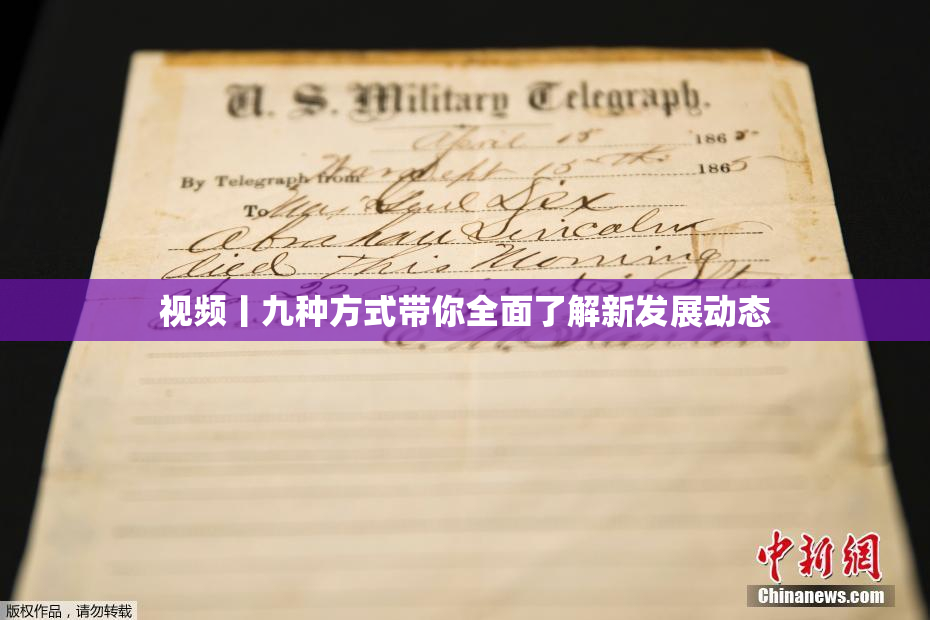 U. S. Military Telegraph.
April 15 1865
By Telegraph from War Dept 15th 1865
To Maj Genl Dix
Abraham Lincoln
died This Morning
at 22 minutes after
视频丨九种方式带你全面了解新发展动态
E. M. Stanton
中新網
Chinanews.com
版权作品，请勿转载